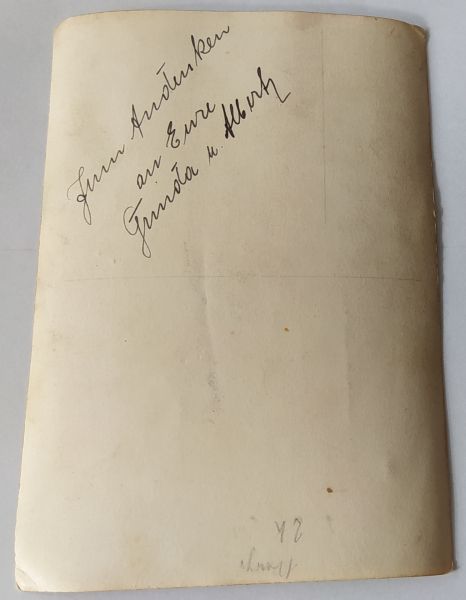 Zum Andenken
an Eure
Gunda u. Albert